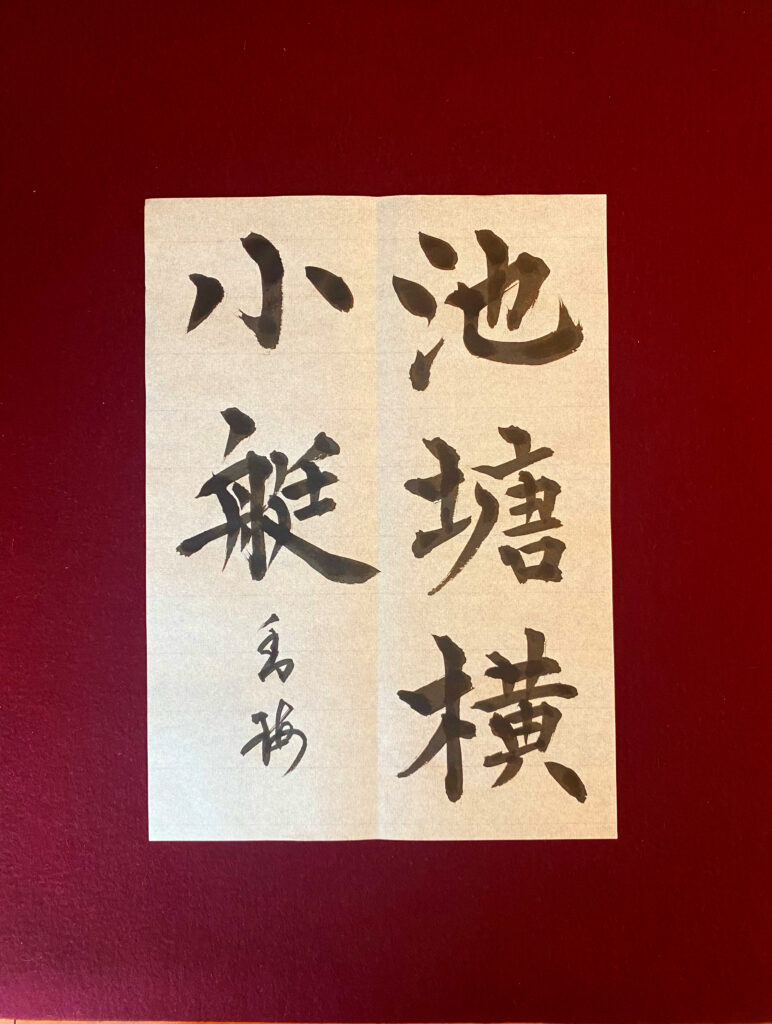 池塘横
小艇
香梅